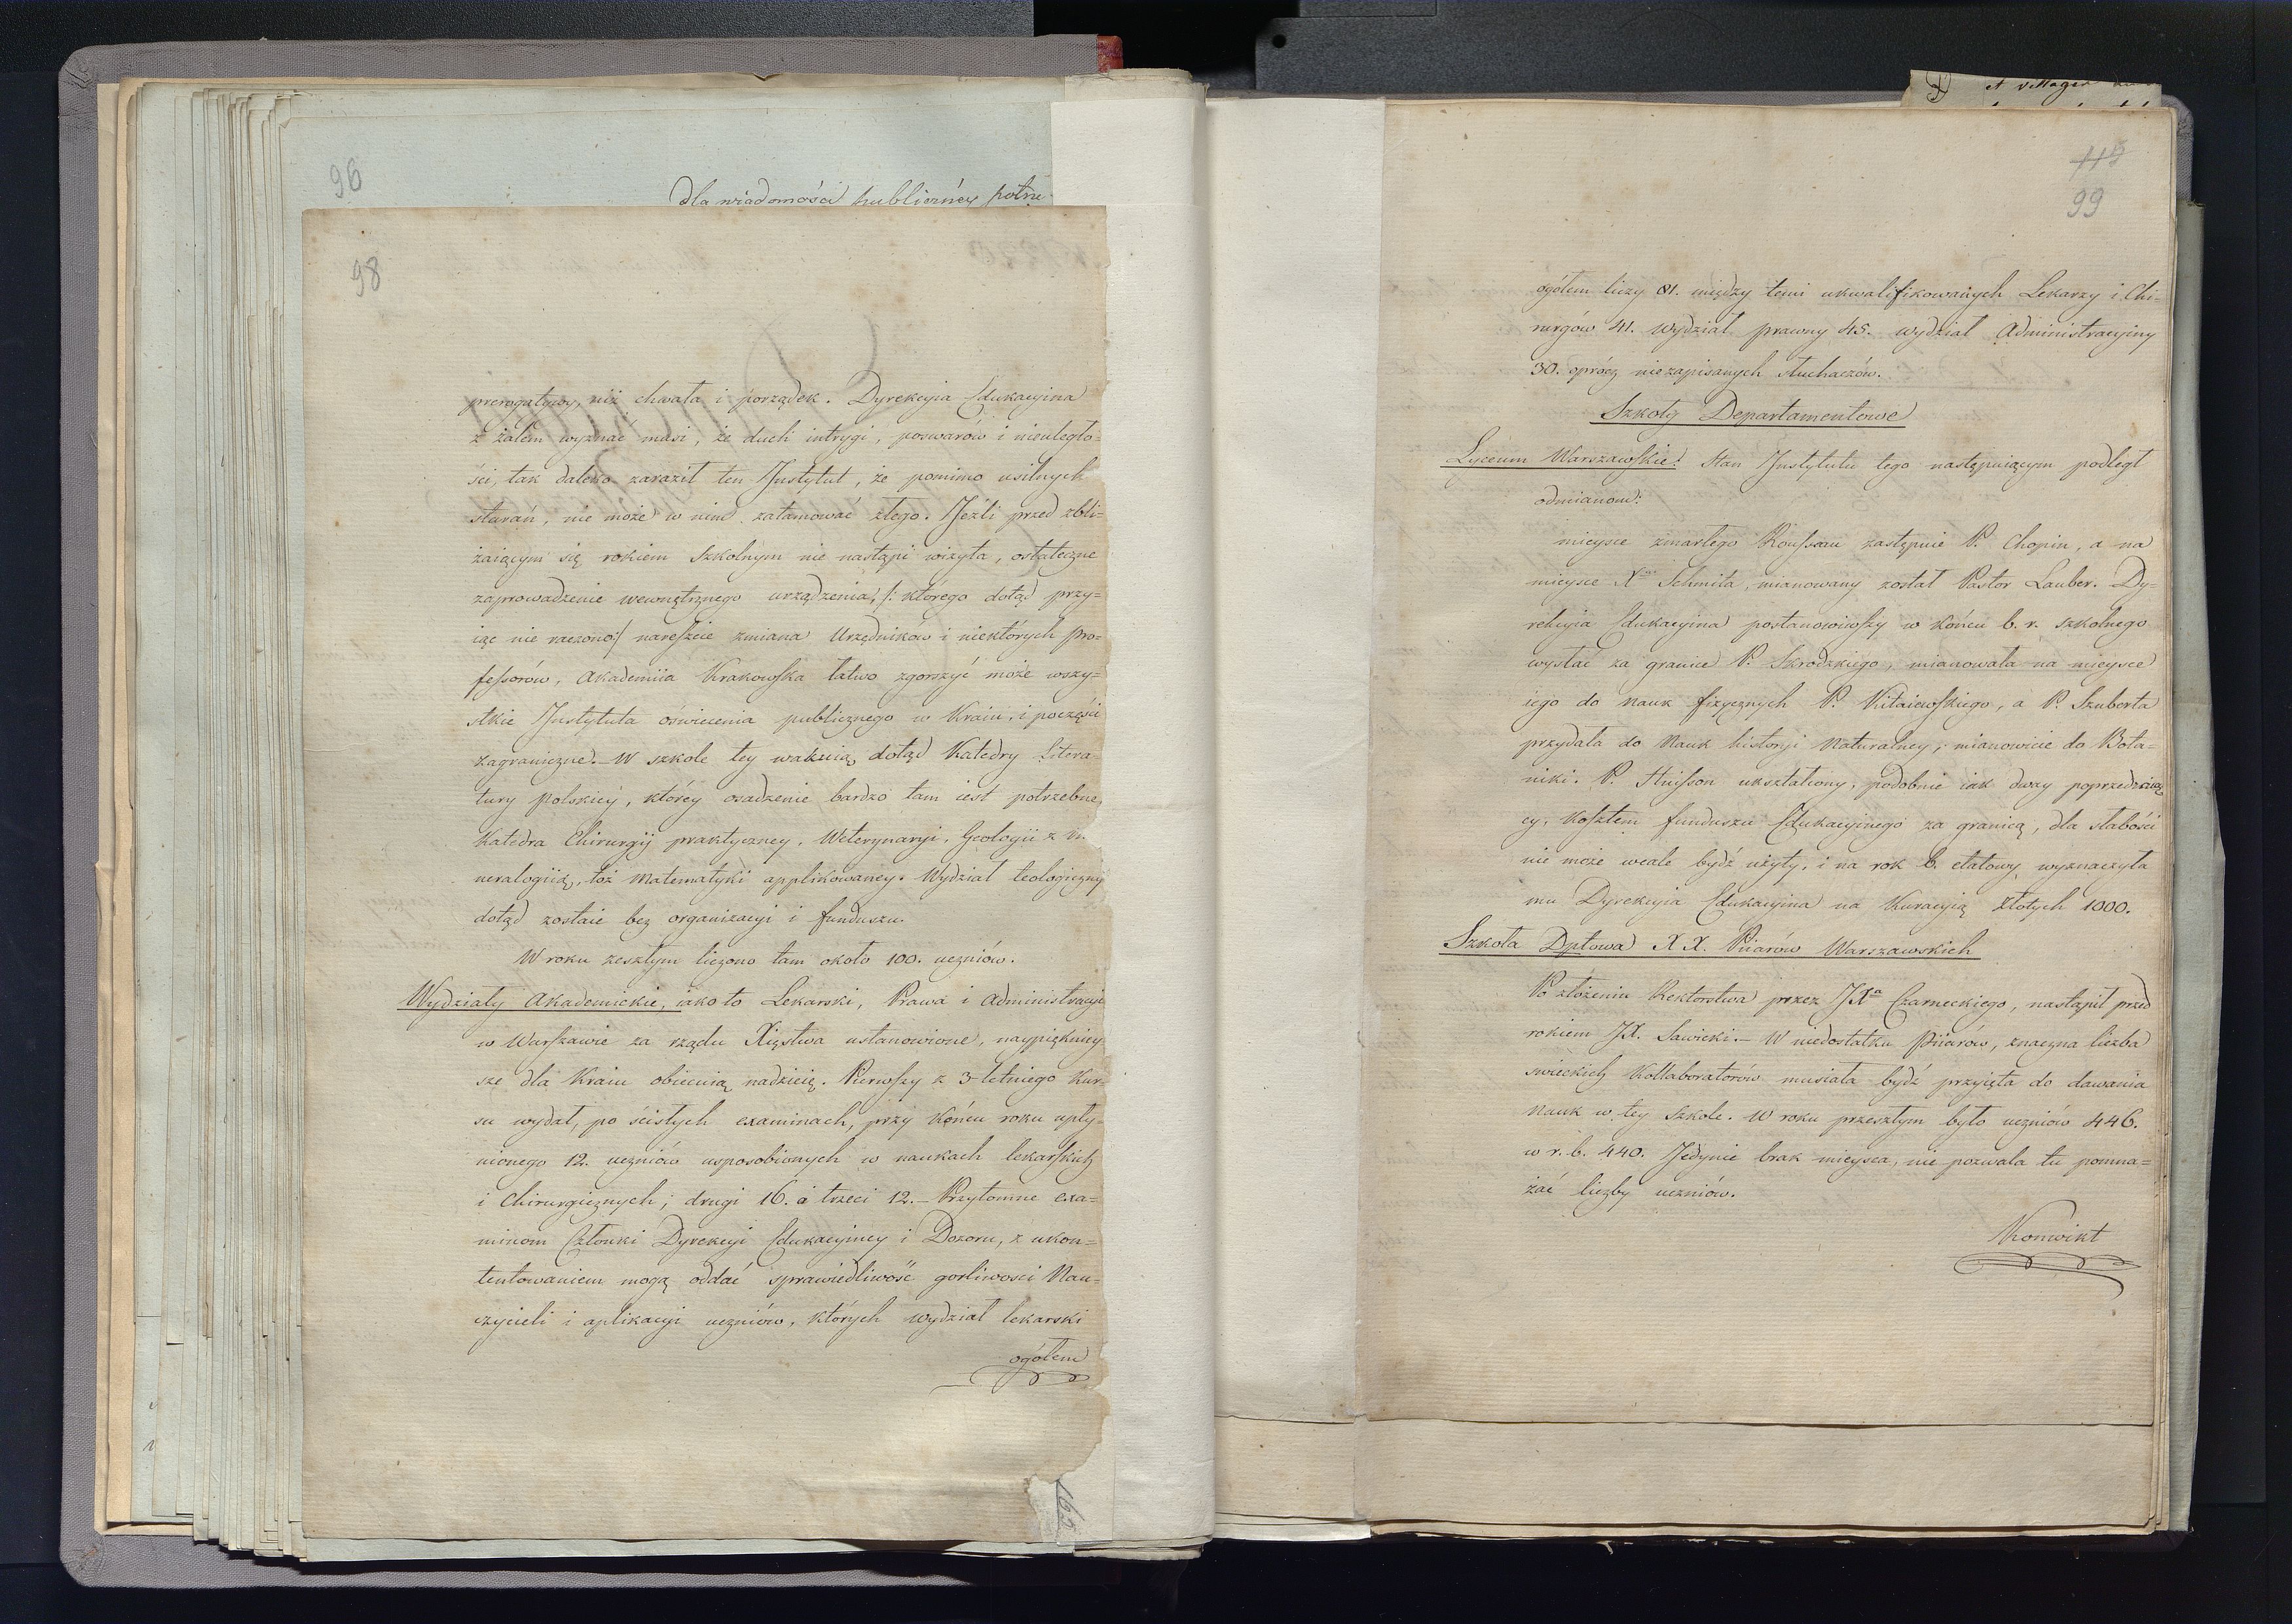 96
dla wiadomości publiczney potrze-
98
prerogatywy, niż chwała i porządek. Dyrekcyia Edukacyina
z żalem wyznać musi, że duch intrygi, poswarów i nieuległo=
ści, tak daleko zaraził ten Instytut, że pomimo usilnych
starań, nie może w nim zatamować złego. Jeźli przed zbli=
żaiącym się rokiem Szkolnym nie nastąpi wizyta, ostateczne
zaprowadzenie wewnętrznego urządzenia, /: którego dotąd przy=
iąć nie raczono :/ nareszcie zmiana Urzędników i niektórych Pro=
fessorów, Akademiia Krakowska łatwo zgorszyć może wszy=
stkie Instytuta oświecenia publicznego w Kraiu, i poczęści
zagraniczne. – W szkole tey wakuią dotąd Katedry Litera=
tury Polskiéy, któréy osadzenie bardzo tam iest potrzebne,
Katedra Chirurgij praktyczney, Weterynaryi, Geologii z Mi
neralogiią, toż Matematyki applikowaney. Wydział teologiczny
dotąd zostaie bez organizacyi i funduszu.
W roku zeszłym liczono tam około 100. uczniów.
Wydziały Akademickie, iako to Lekarski, Prawa i Administracyi
w Warszawie za rządu Xięstwa ustanowione, naypiękniey
sze dla Kraiu obiecuią nadzieię. Pierwszy z 3-letniego Kur=
su wydał, po ścisłych examinach, przy końcu roku upły=
nionego 12. uczniów usposobionych w naukach lekarskich
i Chirurgicznych; drugi 16. a trzeci 12. – Przytomne exa=
minom Członki Dyrekcyi Edukacyiney i Dozoru, z ukon=
tentowaniem mogą oddać sprawiedliwość gorliwosci Nau=
czycieli i aplikacyi uczniów, których wydział lekarski
ogółem
162
115
99
ogółem liczy 81. między temi ukwalifikowanych Lekarzy i Chi=
rurgów 41. Wydział prawny 45. wydział Administracyiny
30. oprócz niezapisanych słuchaczów.
Szkoły Departamentowe
Lyceum Warszawskie: Stan Instytutu tego następuiącym podległ
odmianom:
mieysce zmarłego Roussau zastępuie P. Chopin, a na
mieysce Xa Schmita, mianowany został Pastor Lauber. Dy=
rekcyia Edukacyina postanowiwszy w końcu b. r. szkolnego
wysłać za granicę P. Skrodzkiego, mianowała na mieysce
iego do nauk fizycznych P. Kitaiewskiego, a P. Szuberta
przydała do Nauk historyi Naturalney, mianowicie do Bota=
niki. P. Stuisson ukształcony, podobnie iak dway poprzedzaią
cy, kosztem funduszu Edukacyinego za granicą, dla słabości
nie może wcale bydź użyty, i na rok b. etatowy wyznaczyła
mu Dyrekcyia Edukacyina na Kuracyią złotych 1000.
Szkoła Dptowa X.X. Piiarów Warszawskich
Po złożeniu Rektorstwa przez JXa Czarneckiego, nastąpił przed
rokiem JX. Sawicki. – W niedostatku Piiarów, znaczna liczba
świeckich Kollaboratorów musiała bydź przyięta do dawania
nauk w tey Szkole. W roku przeszłym było uczniów 446.
w r. b. 440. Jedynie brak mieysca, nie pozwala tu pomna=
żać liczby uczniów.
Konwikt